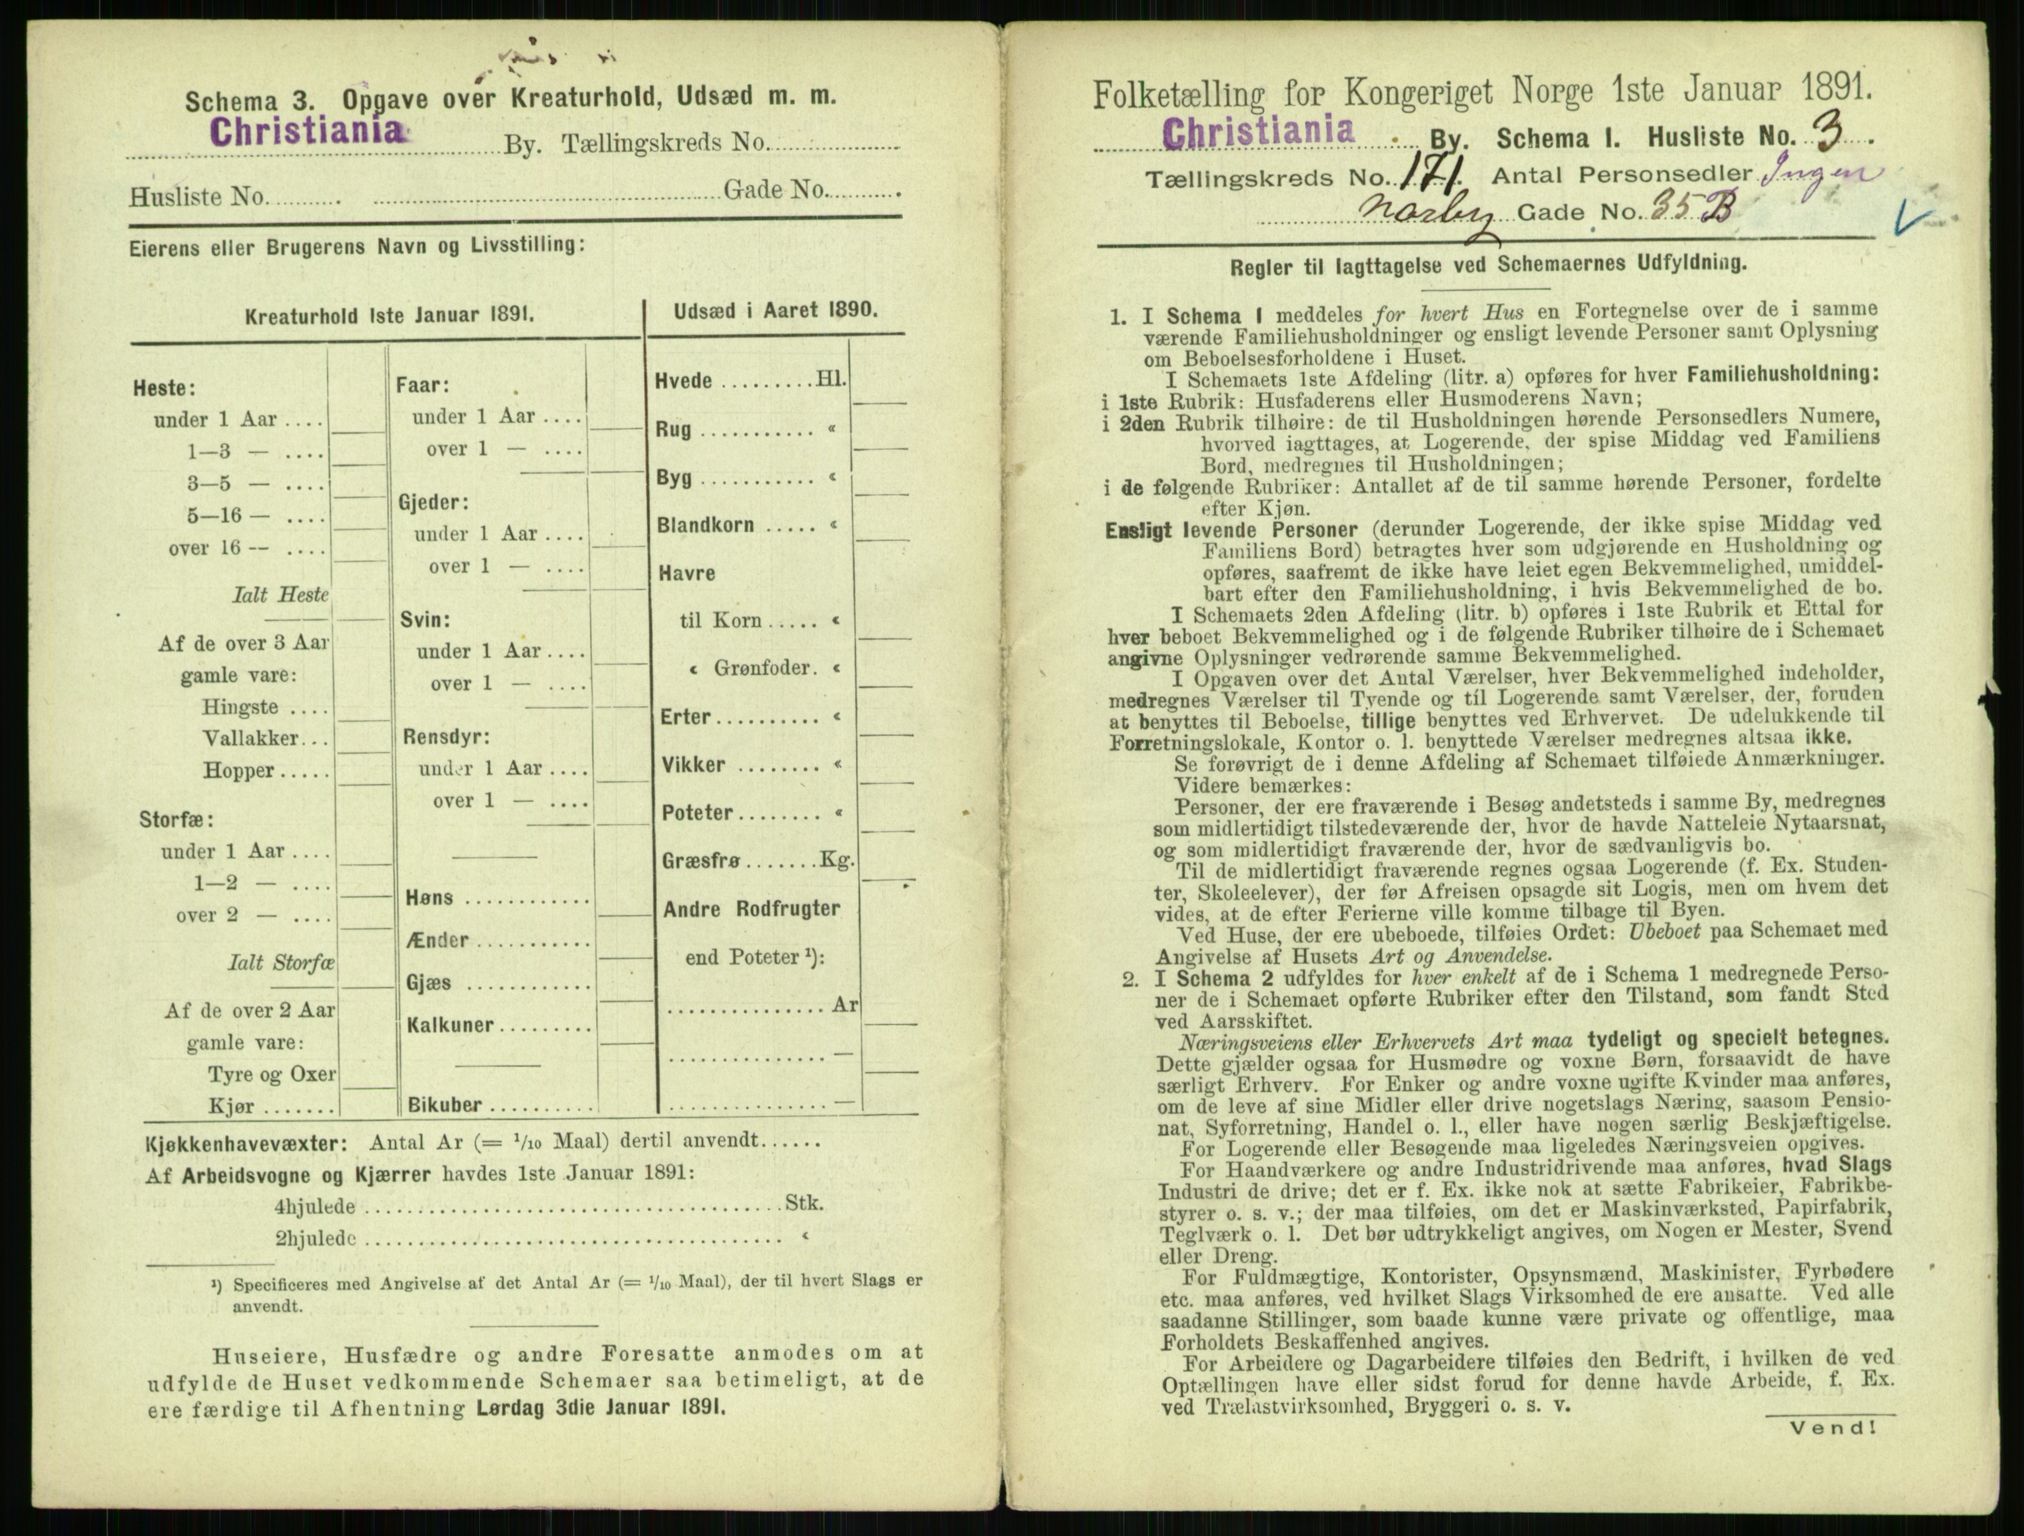 Schema 3. Opgave over Kreaturhold, Udsæd m. m.
Christiania By. Tællingskreds No.
Husliste No. Gade No.
Eierens eller Brugerens Navn og Livsstilling:
Kreaturhold 1ste Januar 1891.
Heste:
under 1 Aar ....
1—3 — ....
3—5 — ....
5—16 — ....
over 16 — ....
Ialt Heste
Af de over 3 Aar
gamle vare:
Hingste ....
Vallakker...
Hopper.....
Storfæ:
under 1 Aar ....
1—2 — ....
over 2 — ....
Ialt Storfæ
Af de over 2 Aar
gamle vare:
Tyre og Oxer
Kjør .......
Faar:
under 1 Aar ....
over 1 — ....
Gjeder:
under 1 Aar ....
over 1 — ....
Svin:
under 1 Aar ....
over 1 — ....
Rensdyr:
under 1 Aar ....
over 1 — ....
Høns ............
Ænder ...........
Gjæs ............
Kalkuner .........
Bikuber ..........
Udsæd i Aaret 1890.
Hvede .........Hl.
Rug ........... «
Byg ........... «
Blandkorn ..... «
Havre
til Korn ..... «
« Grønfoder. «
Erter.......... «
Vikker ........ «
Poteter........ «
Græsfrø .......Kg.
Andre Rodfrugter
end Poteter ¹):
............... Ar
............... —
............... —
Kjøkkenhavevæxter: Antal Ar (= 1/10 Maal) dertil anvendt......
Af Arbeidsvogne og Kjærrer havdes 1ste Januar 1891:
4hjulede ........................................Stk.
2hjulede ........................................ «
¹) Specificeres med Angivelse af det Antal Ar (= 1/10 Maal), der til hvert Slags er
anvendt.
Huseiere, Husfædre og andre Foresatte anmodes om at
udfylde de Huset vedkommende Schemaer saa betimeligt, at de
ere færdige til Afhentning Lørdag 3die Januar 1891.
Folketælling for Kongeriget Norge 1ste Januar 1891.
Christiania By. Schema 1. Husliste No. 3
Tællingskreds No. 171. Antal Personsedler Ingen
Norby Gade No. 35 B
Regler til Iagttagelse ved Schemaernes Udfyldning.
1. I Schema 1 meddeles for hvert Hus en Fortegnelse over de i samme
værende Familiehusholdninger og ensligt levende Personer samt Oplysning
om Beboelsesforholdene i Huset.
I Schemaets 1ste Afdeling (litr. a) opføres for hver Familiehusholdning:
i 1ste Rubrik: Husfaderens eller Husmoderens Navn;
i 2den Rubrik tilhøire: de til Husholdningen hørende Personsedlers Numere,
hvorved iagttages, at Logerende, der spise Middag ved Familiens
Bord, medregnes til Husholdningen;
i de følgende Rubriker: Antallet af de til samme hørende Personer, fordelte
efter Kjøn.
Ensligt levende Personer (derunder Logerende, der ikke spise Middag ved
Familiens Bord) betragtes hver som udgjørende en Husholdning og
opføres, saafremt de ikke have leiet egen Bekvemmelighed, umiddel-
bart efter den Familiehusholdning, i hvis Bekvemmelighed de bo.
I Schemaets 2den Afdeling (litr. b) opføres i 1ste Rubrik et Ettal for
hver beboet Bekvemmelighed og i de følgende Rubriker tilhøire de i Schemaet
angivne Oplysninger vedrørende samme Bekvemmelighed.
I Opgaven over det Antal Værelser, hver Bekvemmelighed indeholder,
medregnes Værelser til Tyende og til Logerende samt Værelser, der, foruden
at benyttes til Beboelse, tillige benyttes ved Erhvervet. De udelukkende til
Forretningslokale, Kontor o. l. benyttede Værelser medregnes altsaa ikke.
Se forøvrigt de i denne Afdeling af Schemaet tilføiede Anmærkninger.
Videre bemærkes:
Personer, der ere fraværende i Besøg andetsteds i samme By, medregnes
som midlertidigt tilstedeværende der, hvor de havde Natteleie Nytaarsnat,
og som midlertidigt fraværende der, hvor de sædvanligvis bo.
Til de midlertidigt fraværende regnes ogsaa Logerende (f. Ex. Studen-
ter, Skoleelever), der før Afreisen opsagde sit Logis, men om hvem det
vides, at de efter Ferierne ville komme tilbage til Byen.
Ved Huse, der ere ubeboede, tilføies Ordet: Ubeboet paa Schemaet med
Angivelse af Husets Art og Anvendelse.
2. I Schema 2 udfyldes for hver enkelt af de i Schema 1 medregnede Perso-
ner de i Schemaet opførte Rubriker efter den Tilstand, som fandt Sted
ved Aarsskiftet.
Næringsveiens eller Erhvervets Art maa tydeligt og specielt betegnes.
Dette gjælder ogsaa for Husmødre og voxne Børn, forsaavidt de have
særligt Erhverv. For Enker og andre voxne ugifte Kvinder maa anføres,
om de leve af sine Midler eller drive nogetslags Næring, saasom Pensio-
nat, Syforretning, Handel o. l., eller have nogen særlig Beskjæftigelse.
For Logerende eller Besøgende maa ligeledes Næringsveien opgives.
For Haandværkere og andre Industridrivende maa anføres, hvad Slags
Industri de drive; det er f. Ex. ikke nok at sætte Fabrikeier, Fabrikbe-
styrer o. s. v.; der maa tilføies, om det er Maskinværksted, Papirfabrik,
Teglværk o. l. Det bør udtrykkeligt angives, om Nogen er Mester, Svend
eller Dreng.
For Fuldmægtige, Kontorister, Opsynsmænd, Maskinister, Fyrbødere
etc. maa anføres, ved hvilket Slags Virksomhed de ere ansatte. Ved alle
saadanne Stillinger, som baade kunne være private og offentlige, maa
Forholdets Beskaffenhed angives.
For Arbeidere og Dagarbeidere tilføies den Bedrift, i hvilken de ved
Optællingen have eller sidst forud for denne havde Arbeide, f. Ex.
ved Trælastvirksomhed, Bryggeri o. s. v.
Vend!